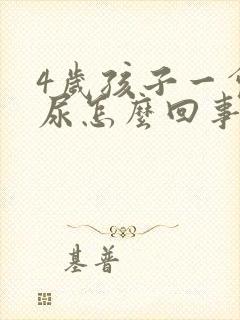 4歲孩子一會
尿怎麼回事
基普